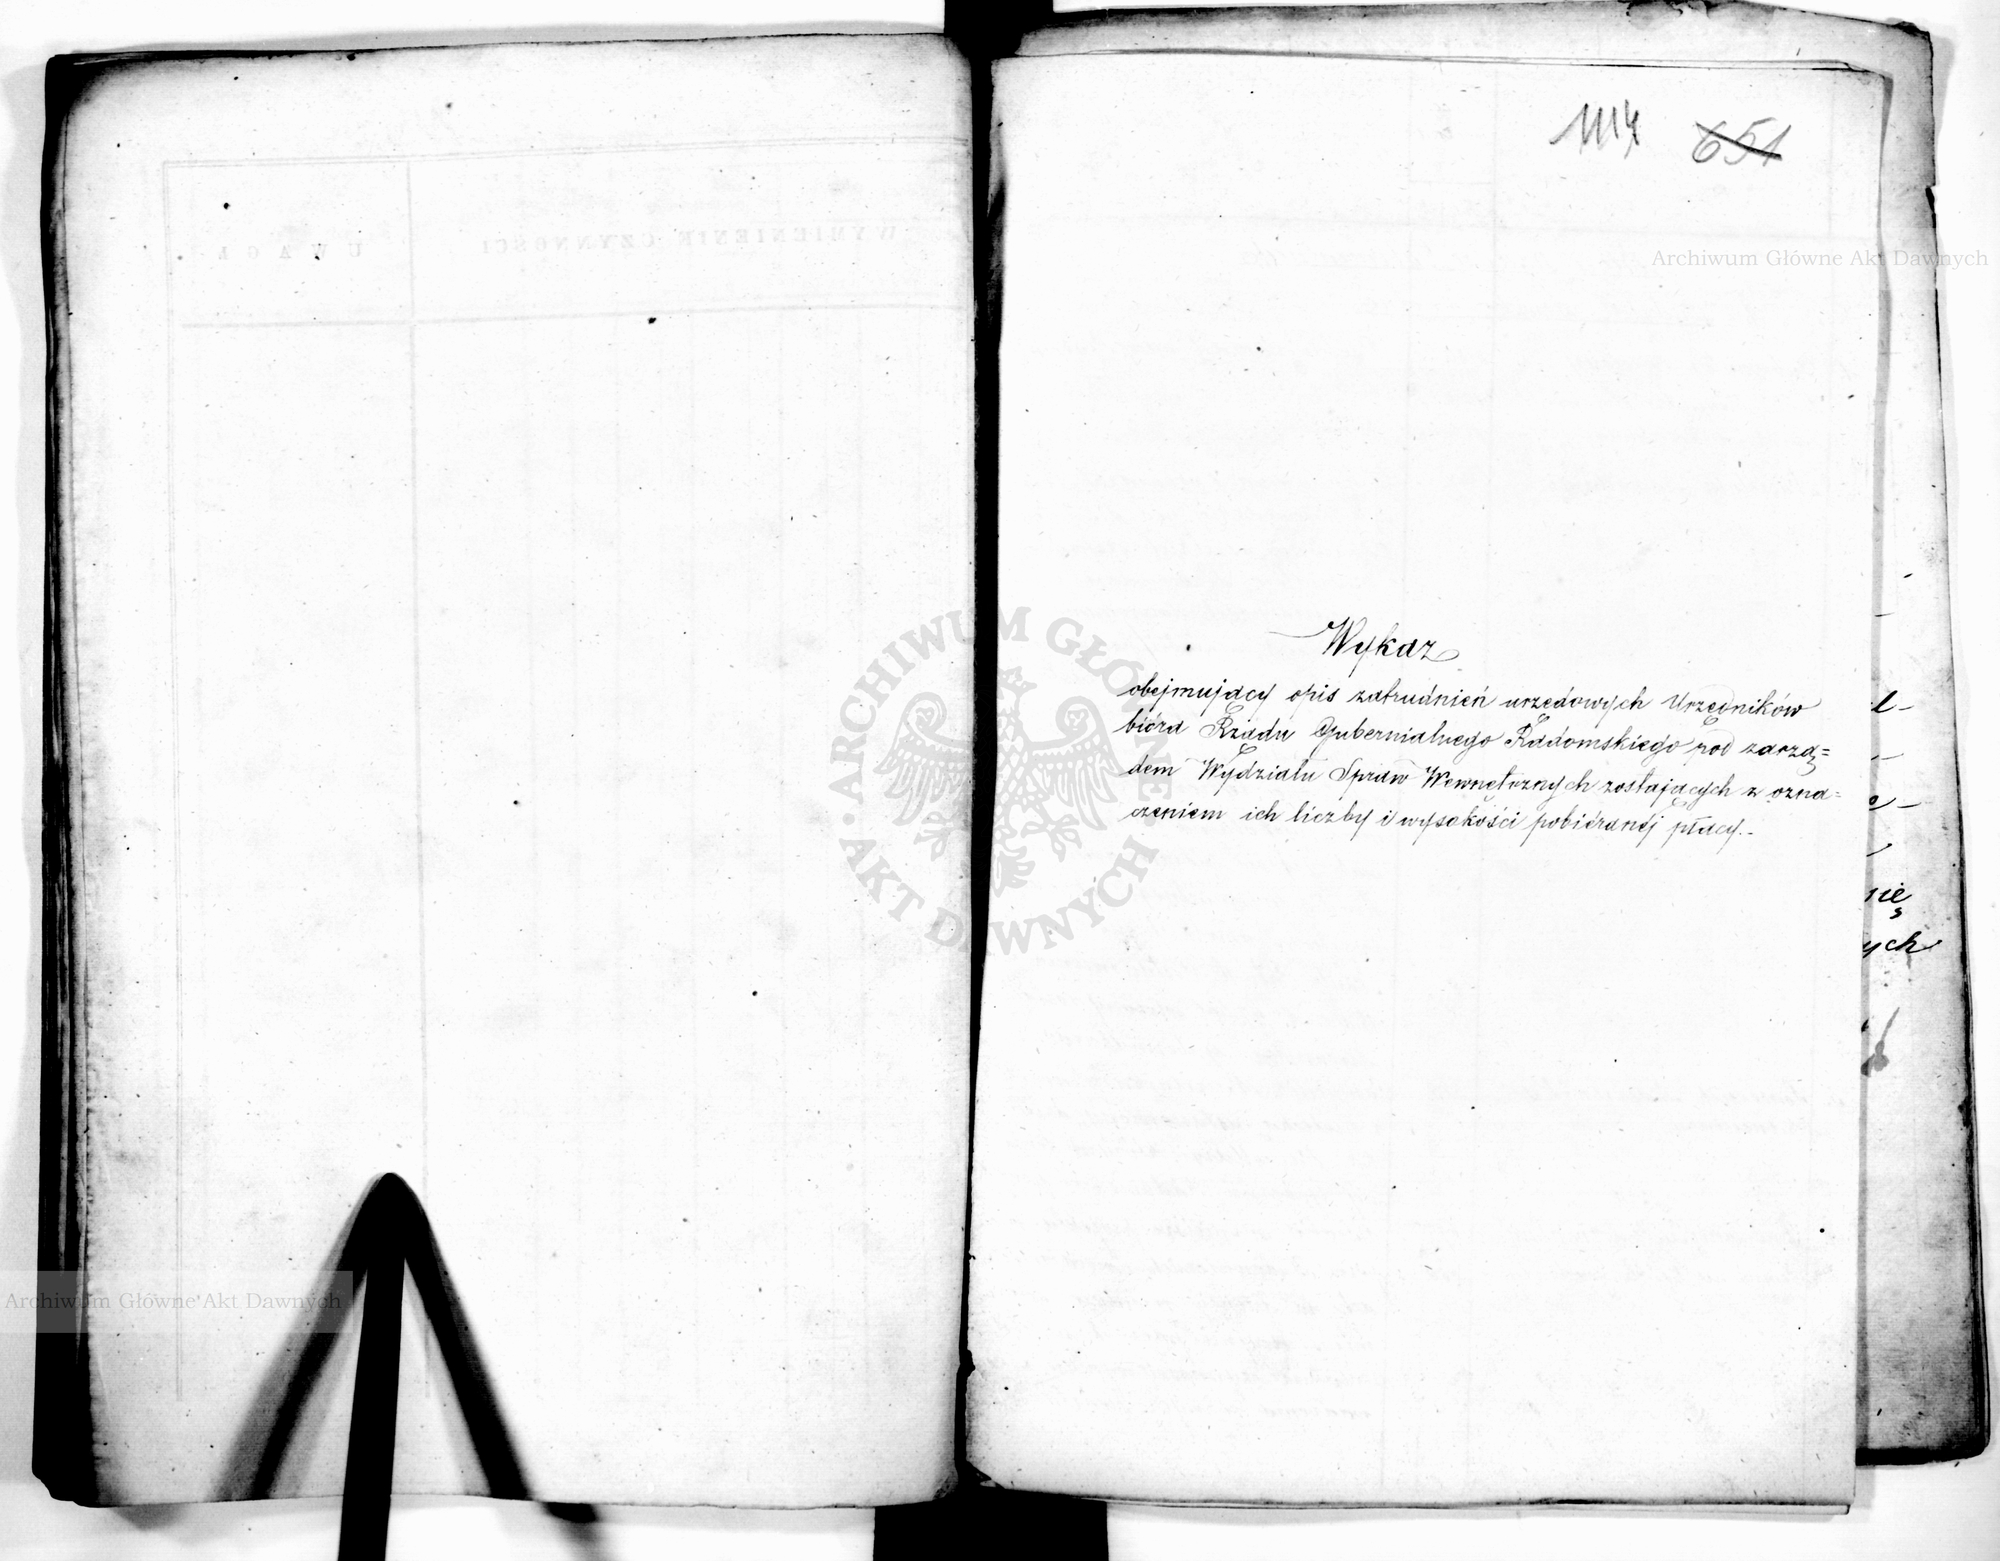 1114 651
Archiwum Główne Akt Dawnych
Wykaz
obejmujący opis zatrudnień urzędowych Urzędników
bióra Rządu Gubernialnego Radomskiego pod zarzą=
dem Wydziału Spraw Wewnętrznych zostających z ozna=
czeniem ich liczby i wysokości pobiéranéj płacy.-
ARCHIWUM GŁÓWNE
AKT DAWNYCH
nię
ych
Archiwum Główne Akt Dawnych
UWAGI
WYMIENIENIE CZYNNOŚCI